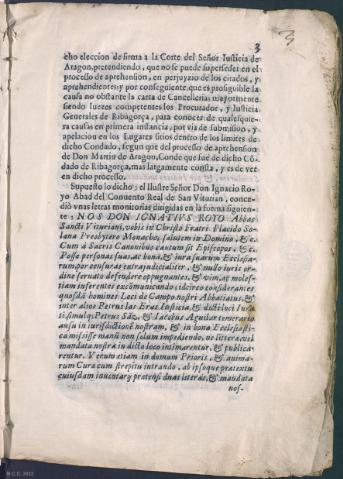 3
3
cho eleccion de firma a la Corte del Señor Iusticia de
Aragon, pretendiendo, que no se puede superseder en el
processo de aprehension, en perjuyzio de los citados, y
aprehendientes: y por conseguiente, que es prosiguible la
causa no obstante la carta de Cancellerias mayormente
siendo Iuezes competentes los Procurador, y Iusticia
Generales de Ribagorça, para conocer de qualesquie-
ra causas en primera instancia, por via de submision, y
apelacion en los Lugares sitios dentro de los limites de
dicho Condado, segun que del processo de aprehension
de Don Martin de Aragon, Conde que fué de dicho Cõ-
dado de Ribagorça, mas largamente consta, y es de ver
en dicho processo.
Supuesto lo dicho; el Ilustre Señor Don Ignacio Ro-
yo Abad del Conuento Real de San Vitorian, conce-
diò vnas letras monitorias dirigidas en la forma siguien-
te: NOS DON IGNATIVS ROYO Abbas
Sancti Vituriani, vobis in Christo Fratri Placido So-
lana Presbytero Monacho, salutem in Domino, & c.
Cum à Sacris Canonibus cautum sit Episcopos, & c.
Posse personas suas, ac bona, & iura suarum Ecclesia-
rum per censuras extraiudicialiter, & nullo iuris or-
dine seruato defendere oppugnantes, & vim, ac moles-
tiam inferentes excõmunicando; idcirco considerantes
quosdã homines Loci de Campo nostri Abbatiatus, &
inter alios Petrus las Eras Iusticia, & dicti loci Iura-
ti, simulq; Petrus Sãz, & Iacobus Aguilar temerario
ausu in iurisdictionẽ nostram, & in bona Ecclesiasti-
ca misisse manũ non solum impediendo, ne litteræ, vel
mandata nostra in dicto loco intimarentur, & publica-
rentur. Verum etiam in domum Prioris, & anima-
rum Cura cum strepitu intrando, ab ipsoque pratextu
cuiusdam inuentarij pratensi duas literas, & mandata
nos-